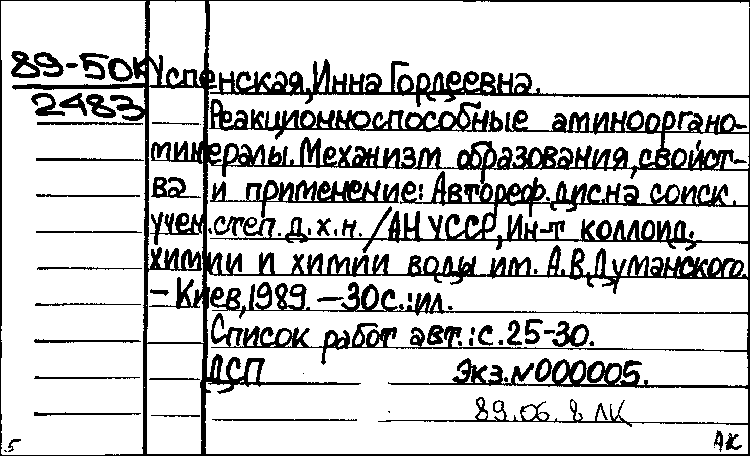 89-50К
2483
Успенская, Инна Гордеевна.
Реакционноспособные аминооргано-
минералы. Механизм образования, свойст-
ва и применение: Автореф. дис. на соиск.
учен. степ. д.х.н. / АН УССР, Ин-т коллоид.
химии и химии воды им. А.В. Думанского.
– Киев, 1989. – 30с.: ил.
Список работ авт.: с. 25-30.
ДСП Экз. №000005.
89.06. 8 ЛК
5 АК